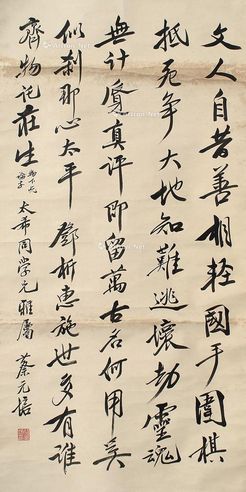 文人自昔善相輕國手圍棋
抵死争大地知難逃壞劫靈魂
無計覓真评即留萬古名何用奚
似刹那心太平鄧析惠施世多有誰
齊物記莊生物下脱論字太希同学兄雅屬 蔡元培